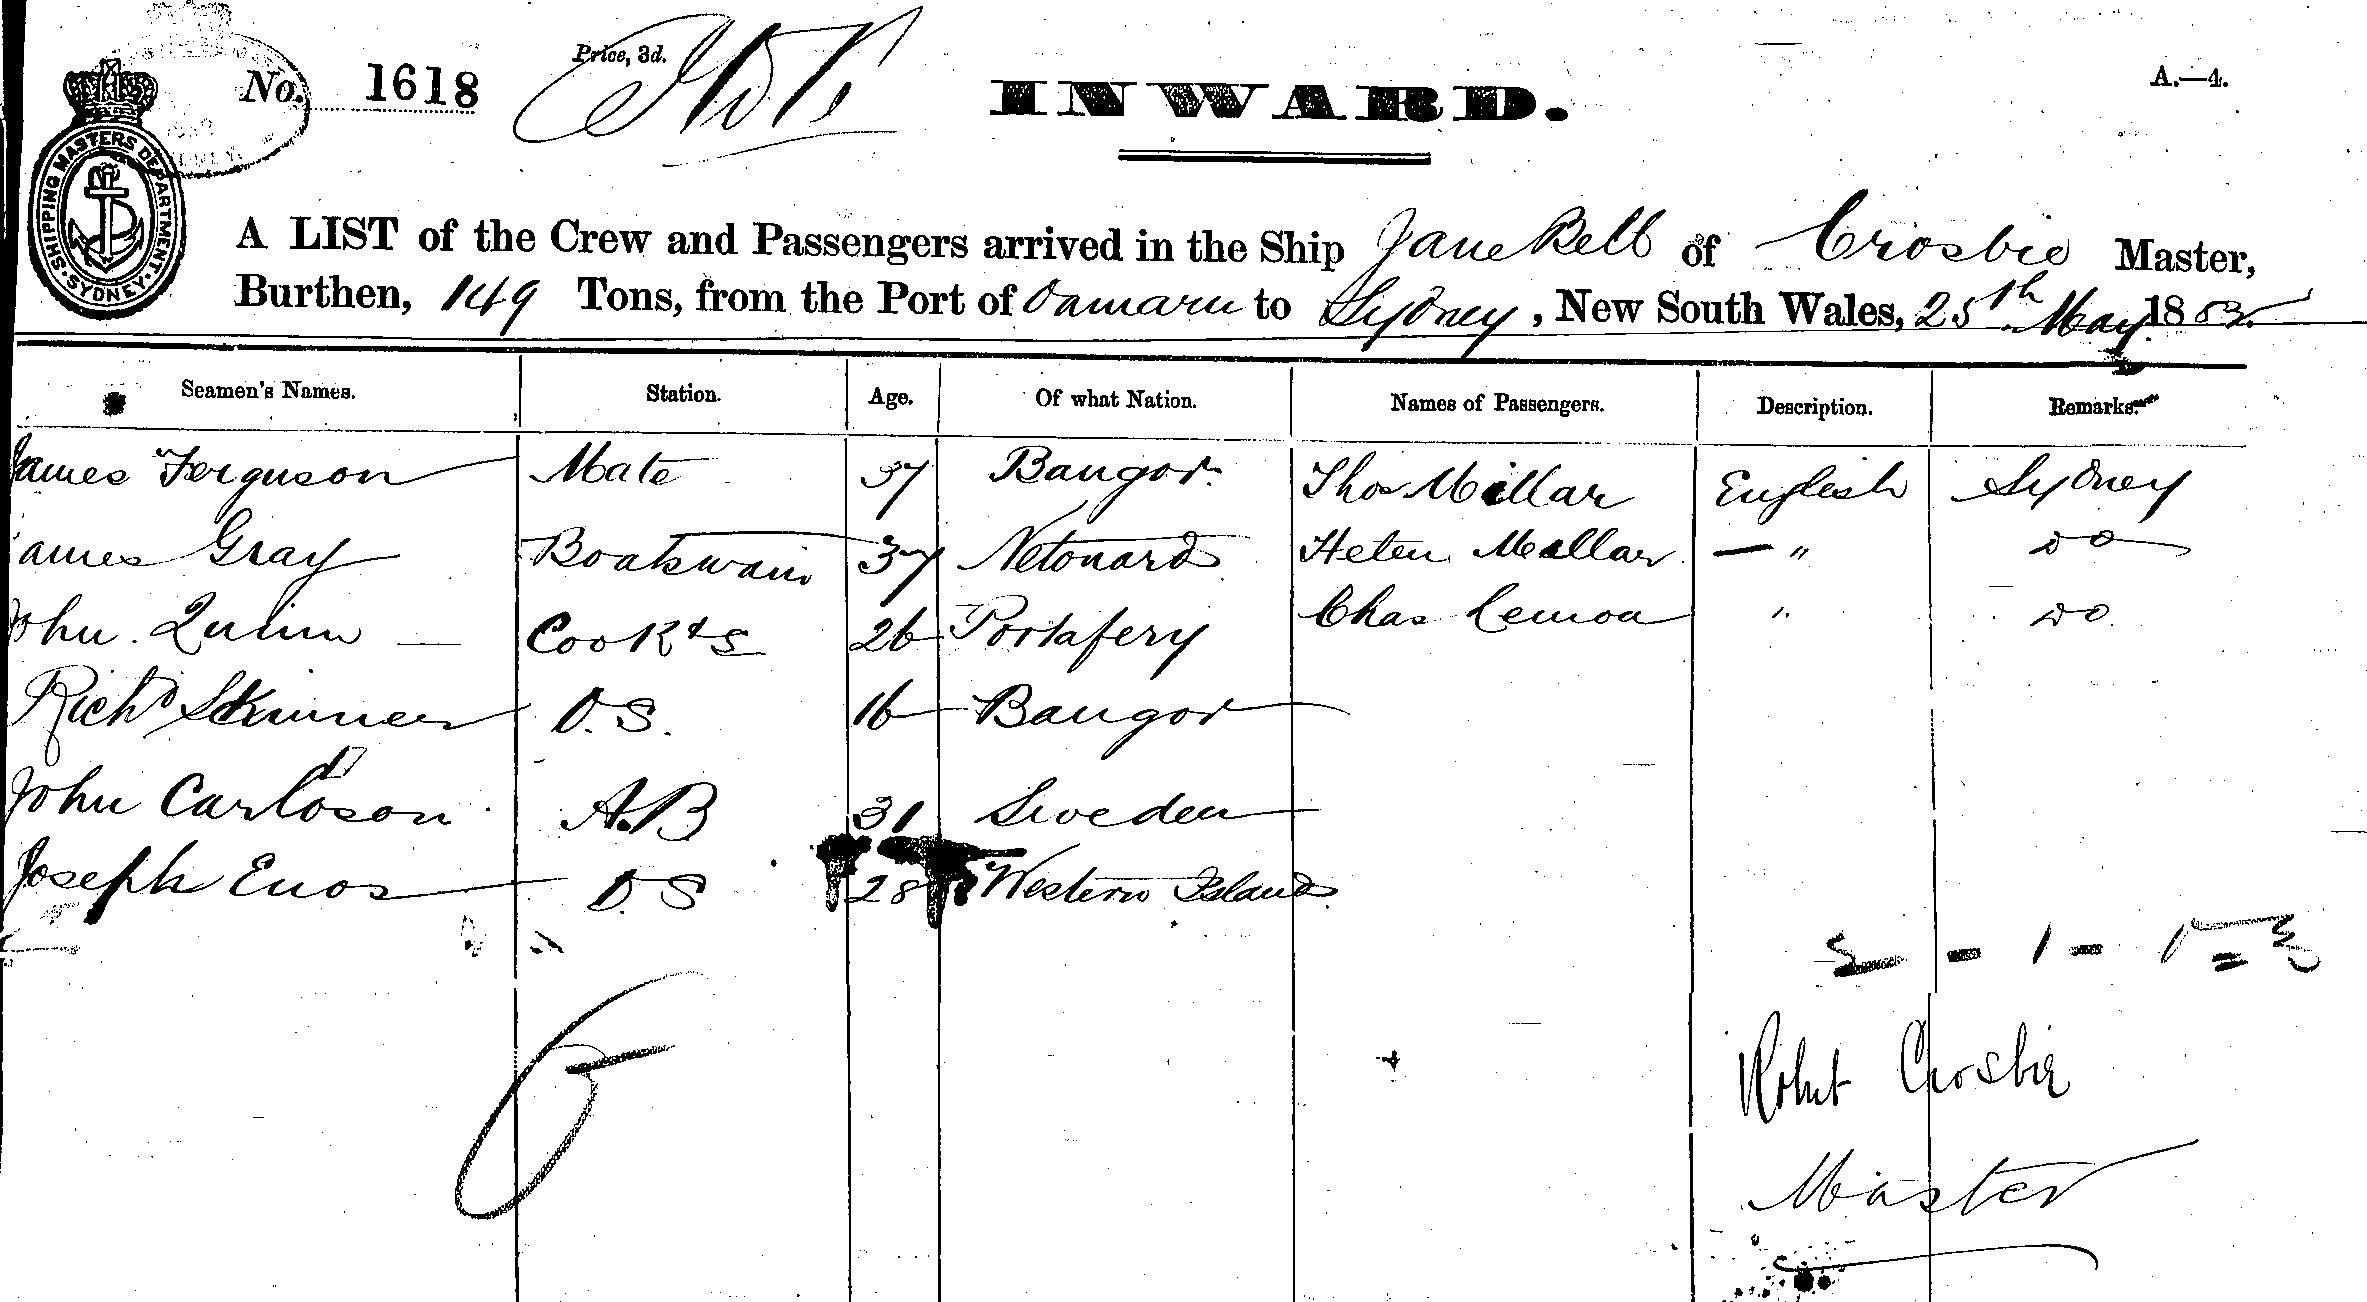 No. 1618
Price, 3d.
INWARD.
A.—4.
SHIPPING MASTERS DEPARTMENT. SYDNEY.
A LIST of the Crew and Passengers arrived in the Ship Jane Bell of Crosbie Master,
Burthen, 149 Tons, from the Port of Oamaru to Sydney, New South Wales, 25th May 188
Seamen's Names. Station. Age. Of what Nation. Names of Passengers. Description. Remarks.
James Ferguson Mate 37 Bangor Thos Millar English Sydney
James Gray Boatswain 37 Netonards Helen Millar — " Do
John Quinn — Cook & S 26 Portafery Chas Lemon " Do
Richd Skinner O.S. 16 Bangor
John Carlson A.B 31 Sweden
Joseph Enos O.S 28 Western Islands
6
Robert Crosbie
Master